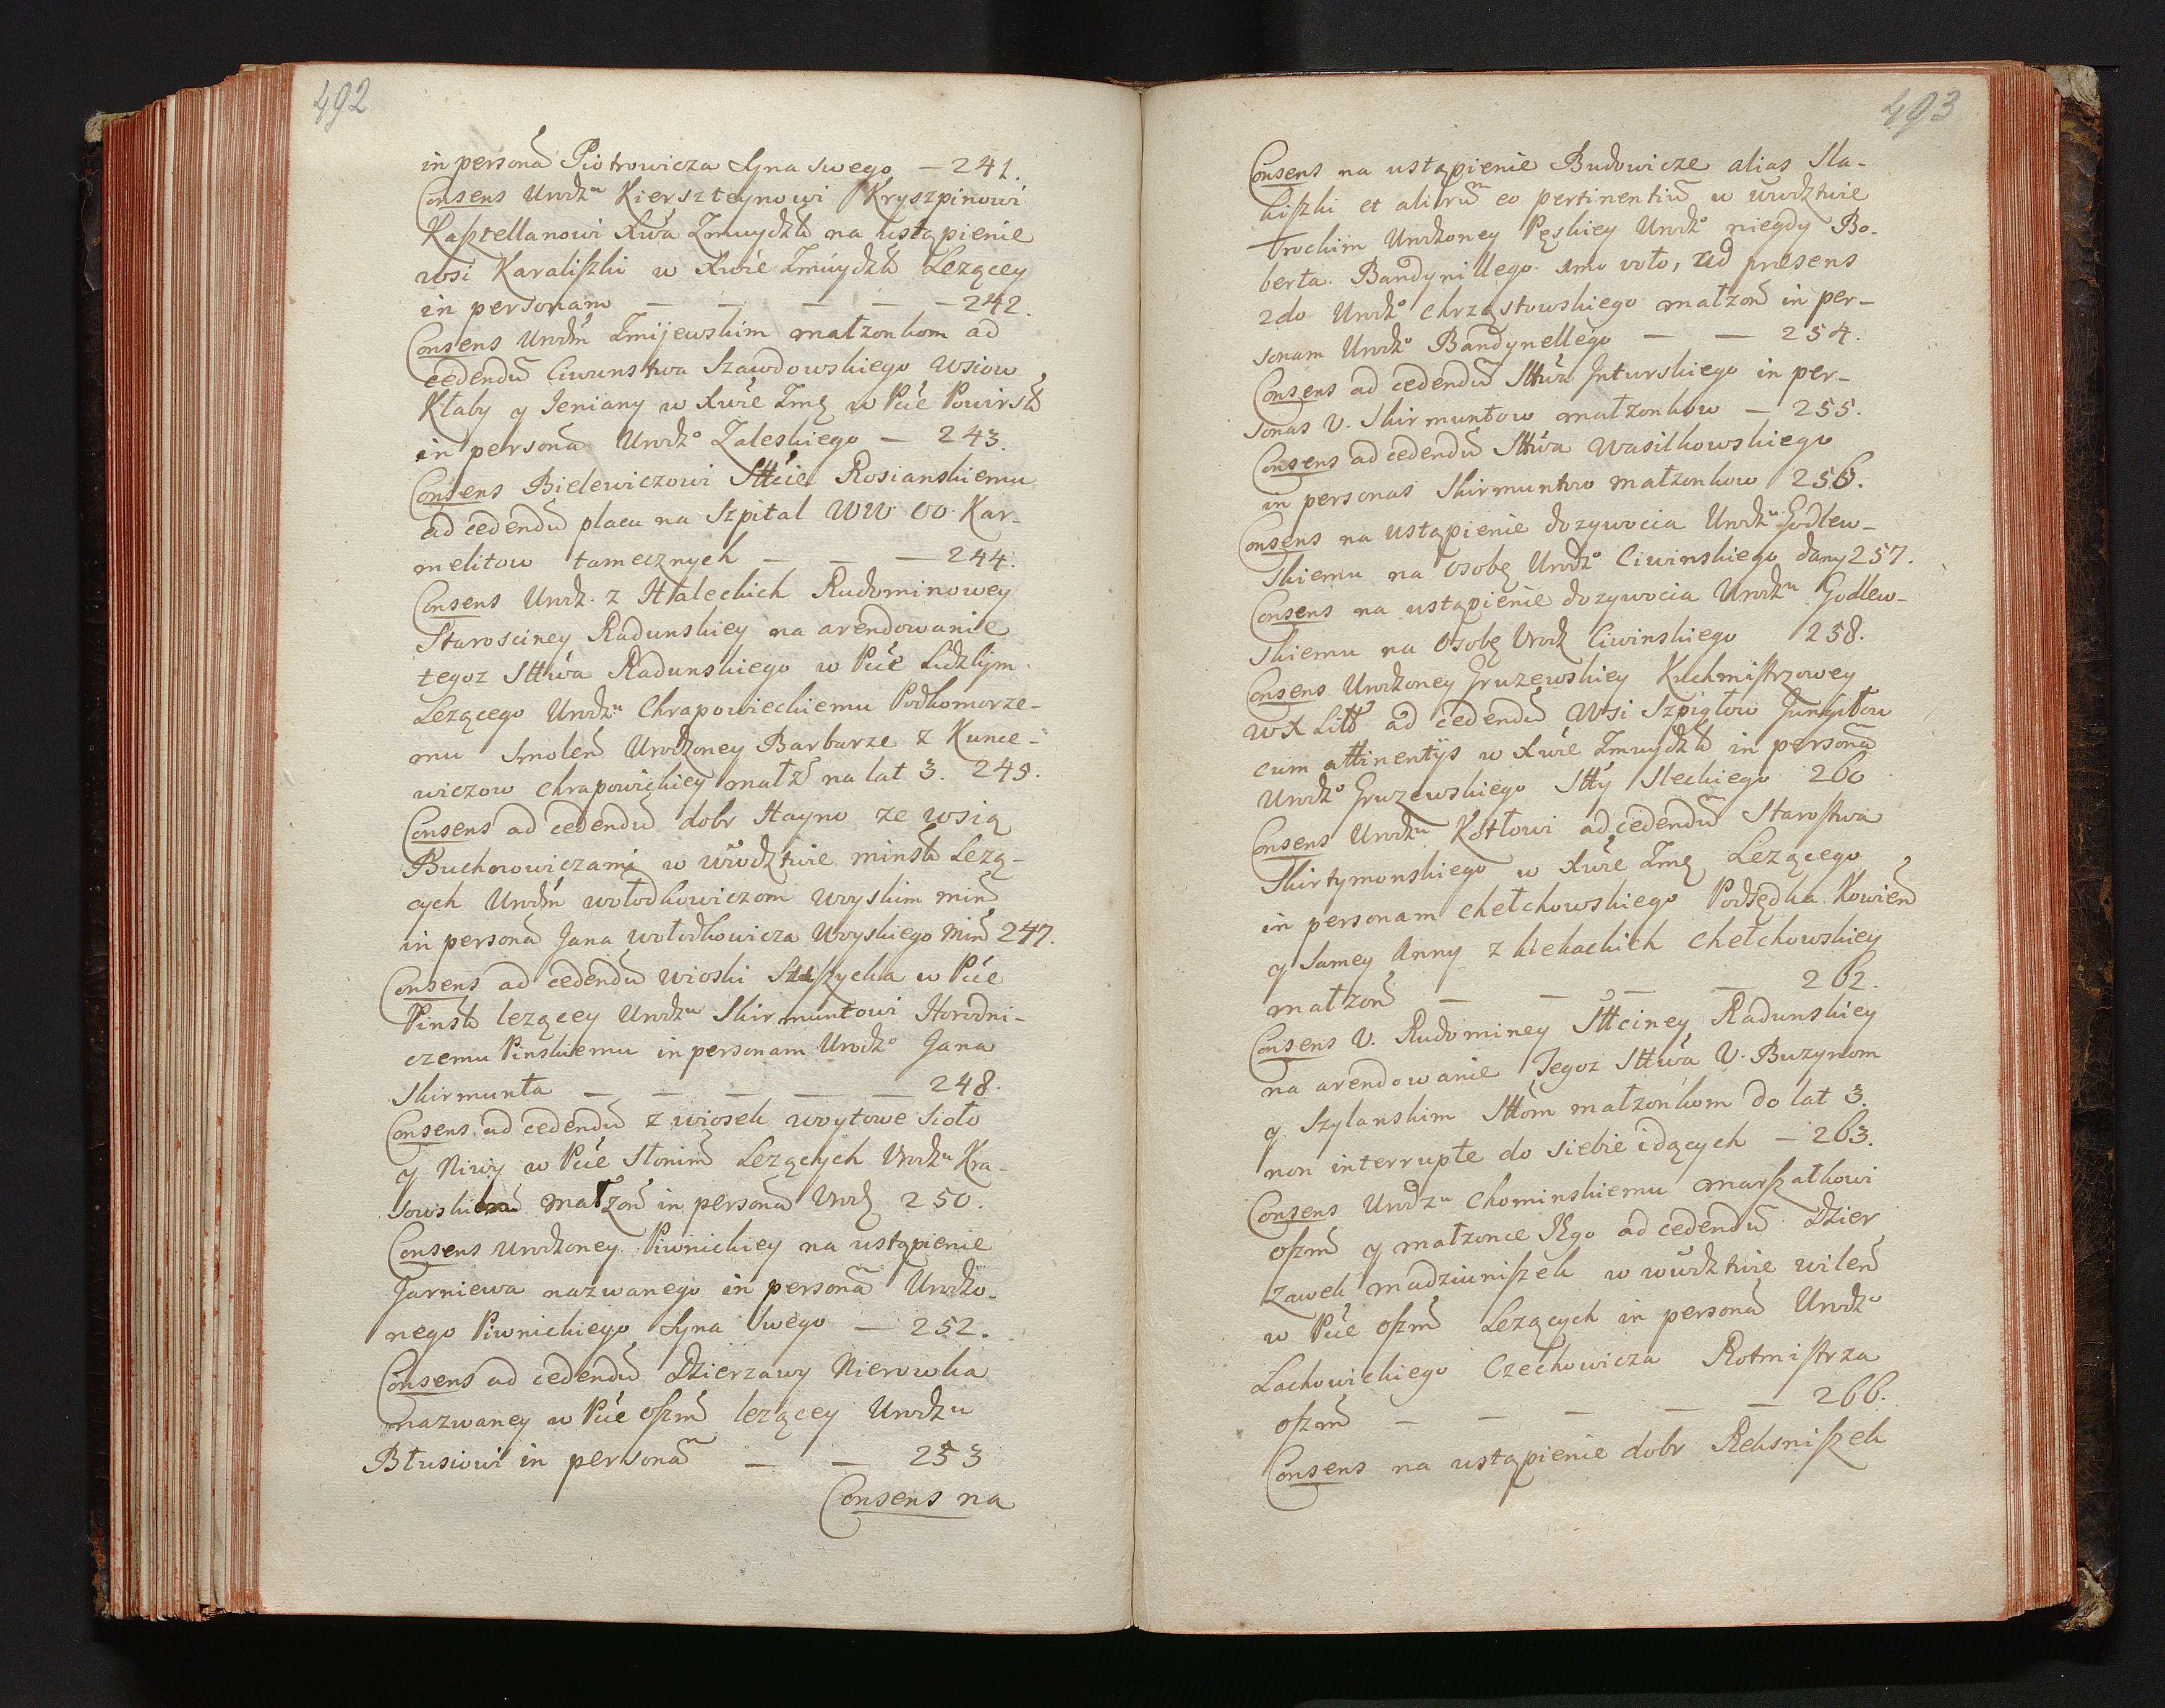 492
in personā Piotrowicza Syna swego — 241.
Consens Urodzu Kierszteynowi Kryszpinowi
Kasztellanowi Xwa Zmuydzk na ustąpienie
wsi Karaliszki w Xwie Zmuydzk Lezącey
in personam — — — — — 242.
Consens Urodm Zmijewskim małzonkom ad
cedendū Ciwunstwa Szawdowskiego Wsiow
Kłaby y Jeniany w Xwie Zmg w Pcie Powirsk
in personā Urodzo Zaleskiego — 243.
Consens Bielewiczowi Sttcie Rosianskiemu
ad cedendū placu na Szpital WW. OO. Kar-
melitow tamecznych — — — 244.
Consens Urodz. z Haleckich Rudominowey
Starosciney Radunskiey na arendowanie
tegoz Sttwa Radunskiego w Pcie Lidzkim
Lezącego Urodzu Chrapowieckiemu Podkomorze-
mu Smolen Urodzoney Barbarze z Kunce-
wiczow Chrapowickiey małz na lat 3. 245.
Consens ad cedendū dobr Hayno ze wsią
Buchnowiczami w Wwodztwie minsk Lezą-
cych Urodm wołodkowiczom Woyskim min
in personā Jana wołodkowicza Woyskiego Min 247.
Consens ad cedendū wioski w Pcie
Pinsk lezącey Urodzu Skirmuntowi Horodni-
czemu Pinskiemu in personam Urodzo Jana
Skirmunta — — — — — 248.
Consens ad cedendū z wiosek woytowe Sioło
y Niwy w Pcie Słonim Lezących Urodzu Kra-
sowskiem małzon in personā Urodz 250.
Consens Urodzoney Piwnickiey na ustąpienie
Jarniewa nazwanego in personā Urodzo-
nego Piwnickiego Syna Swego — 252.
Consens ad cedendū Dzierzawy Nierowka
nazwaney w Pcie oszm lezącey Urodzu
Błusiowi in personā — — 253
Consens na
493
Consens na ustąpienie Budowicze alias Sla-
kiszki et aliorū eo pertinentiū w Wwodztwie
Trockim Urodzoney Pęskiey Urodzo niegdy Ro-
berta Bandynillego 1mo voto, ad præsens
2do Urodzo Chrząstowskiego małzon in per-
sonam Urodzo Bandynellego — — 254.
Consens ad cedendū Sttwa Inturskiego in per-
sonas U. Skirmuntow małzonkow — 255.
Consens ad cedendū Sttwa Wasilkowskiego
in personas Skirmuntow małzonkow 256.
Consens na ustąpienie dozywocia Urodzu Godlew-
skiemu na osobę Urodzo Ciwinskiego dany 257.
Consens na ustąpienie dozywocia Urodzu Godlew-
skiemu na Osobę Urodz Ciwinskiego 258.
Consens Urodzoney Gruzewskiey Kuchmistrzowey
WX Litt ad cedendū Wsi Szpigłow
cum attinentÿs w Xwie Zmuydzk in personā
Urodzo Gruzewskiego Stty Sleckiego 260
Consens Urodzu Kotłowi ad cedendū Starostwa
Skirtymonskiego w Xwie Zmg Lezącego
in personam Chełchowskiego Podsędka Kowien
y Samey Anny z Chełchowskiey
małzon — — — — 262.
Consens U. Rudominey Sttciney Radunskiey
na arendowanie Tegoz Sttwa U. Buzynom
y Szylanskim Sttom małzonkom do lat 3.
non interrupte do siebie idących — 263.
Consens Urodzu Chominskiemu marszałkowi
oszm y małzonce Jego ad cedendū Dzier
zawek madziuniszek w wwdztwie wilen
w Pcie oszm Lezących in personā Urodzo
Lachowickiego Czechowicza Rotmistrza
oszm — — — — — 266.
Consens na ustąpienie dobr Reksniszek